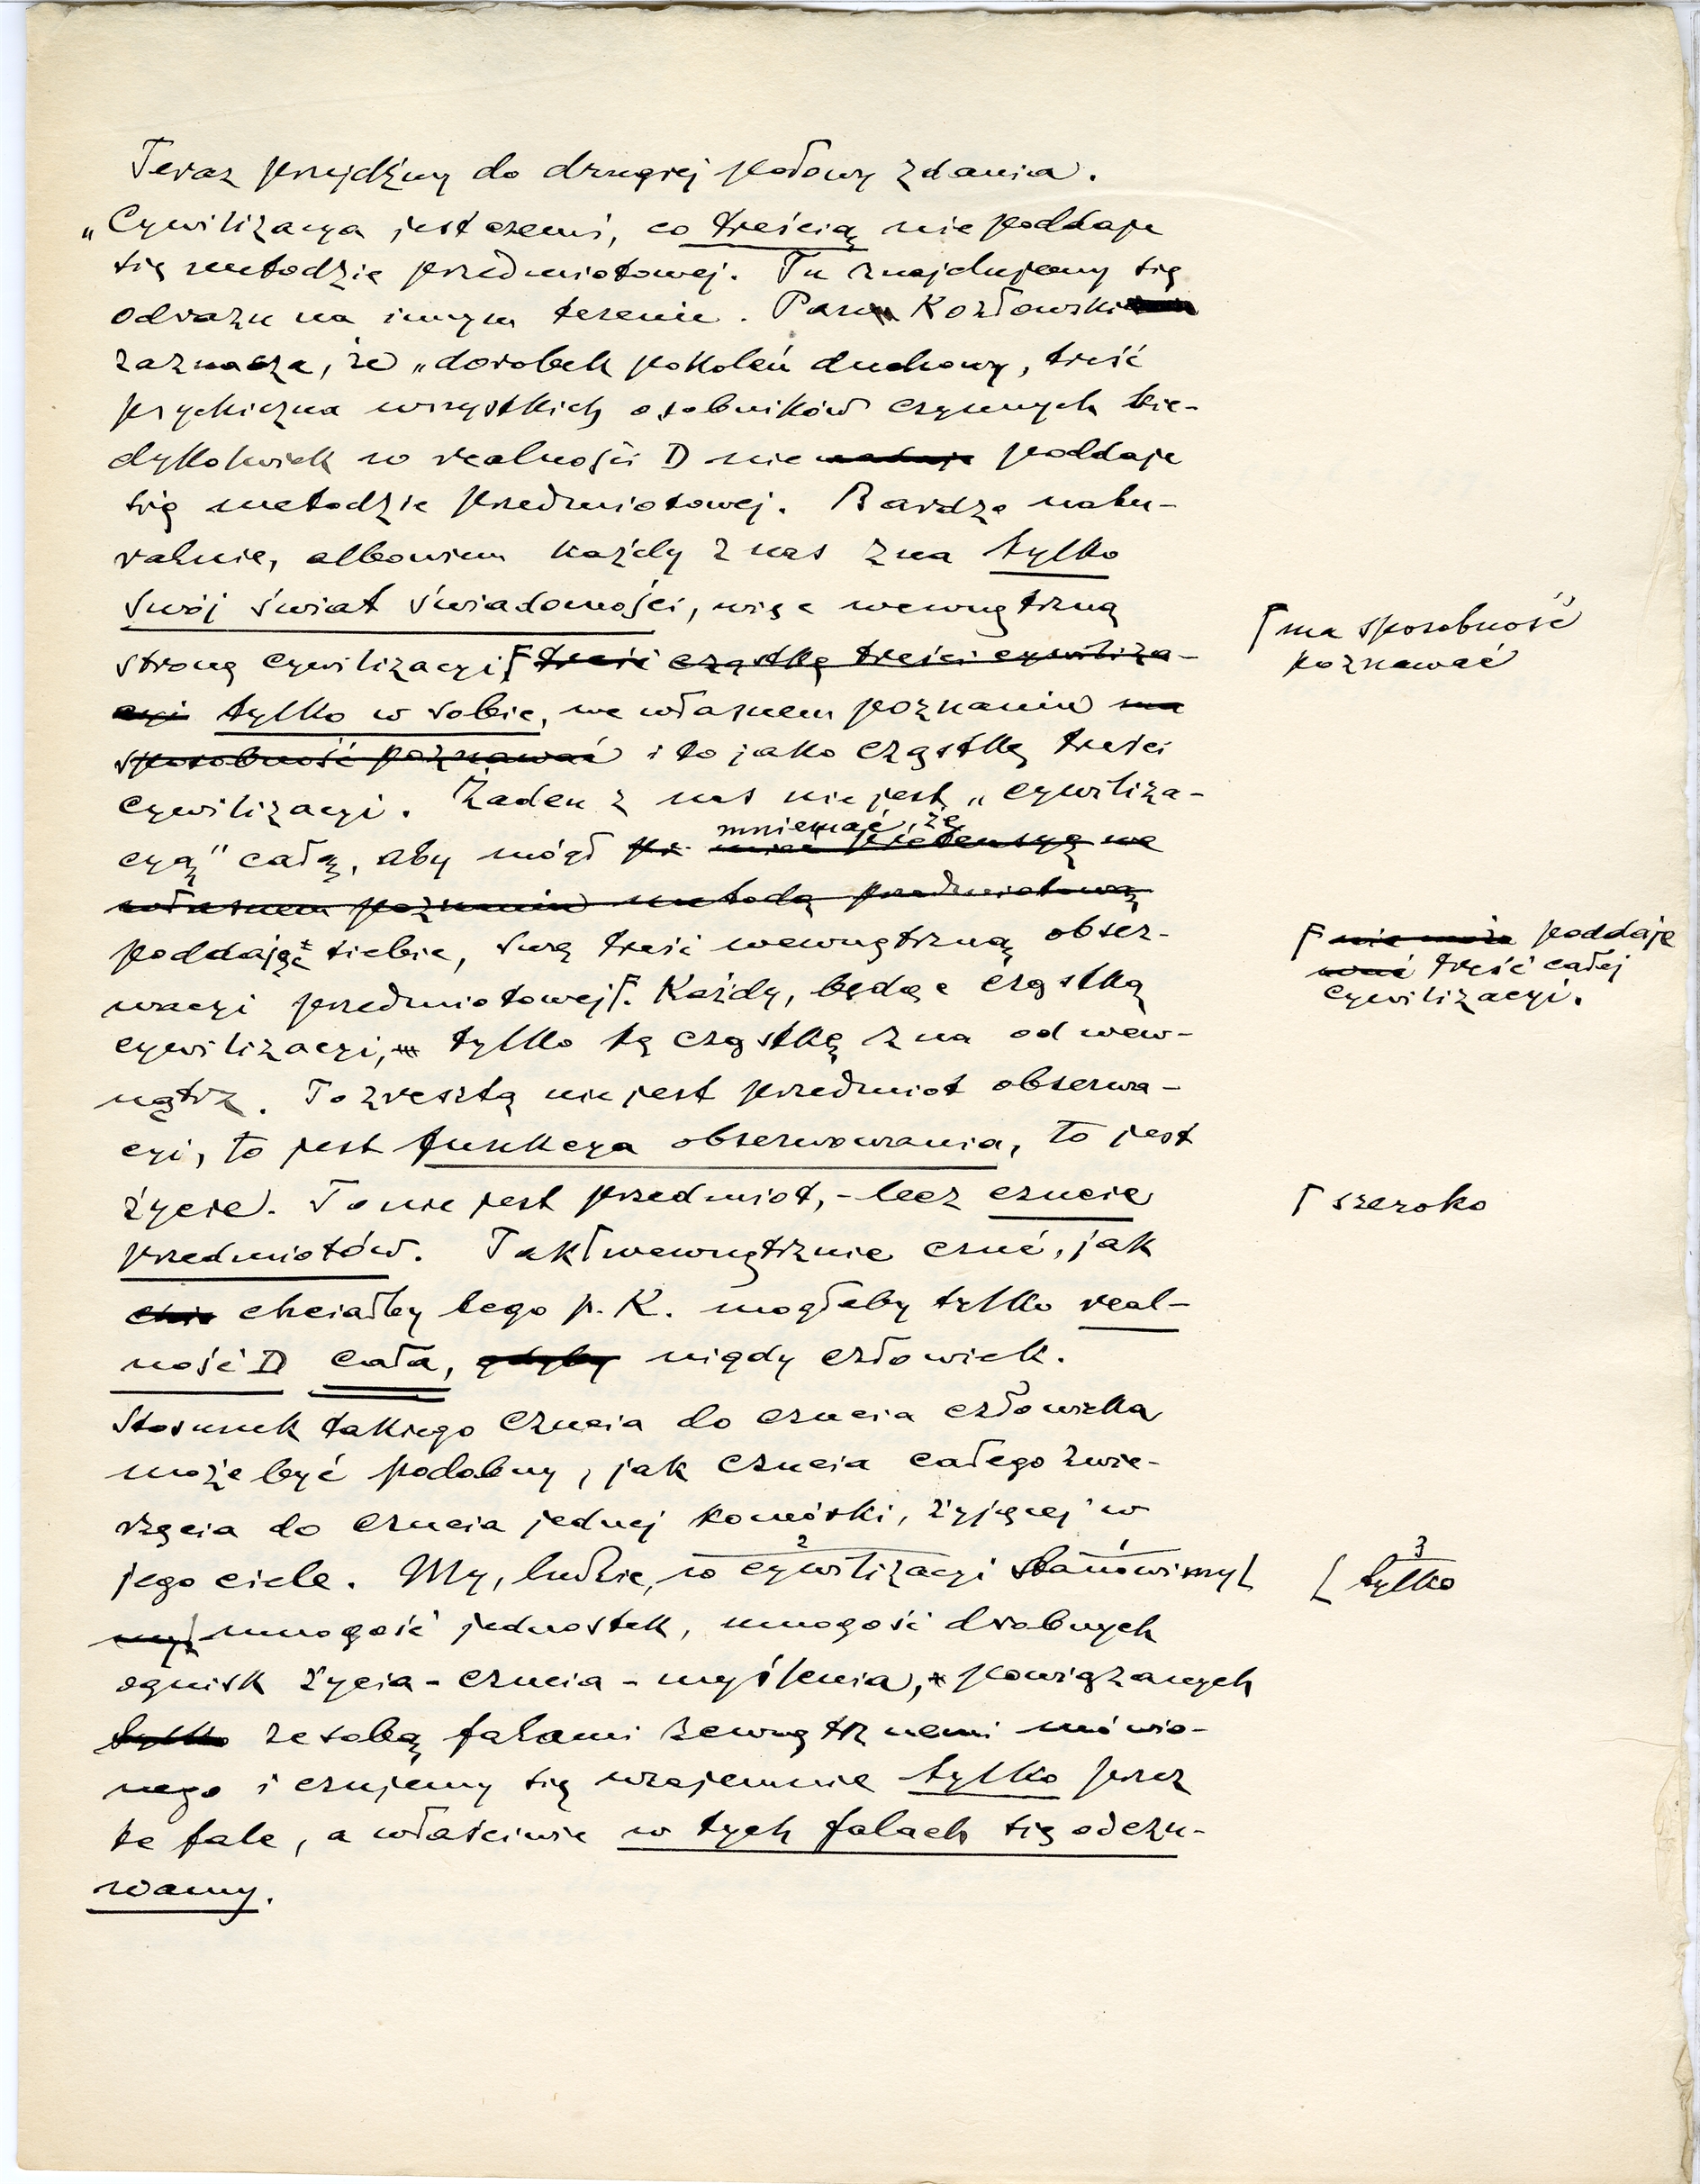 Teraz przejdźmy do drugiej połowy zdania.
„Cywilizacya jest czemś, co treścią nie poddaje
się metodzie przedmiotowej. Tu znajdujemy się
odrazu na innym terenie. Pan Kozłowski
zaznacza, że „dorobek pokoleń duchowy, treść
psychiczna wszystkich osobników czynnych kie-
dykolwiek w realności D nie poddaje
się metodzie przedmiotowej. Bardzo natu-
ralnie, albowiem każdy z nas zna tylko
swój świat świadomości, więc wewnętrzną
stronę cywilizacyi ⌈ treść cząstkę treści cywiliza-
cyi tylko w sobie, we własnem poznaniu ma
sposobność poznawać i to jako cząstkę treści
cywilizacyi. Żaden z nas nie jest „cywiliza-
mniemać, że
cyą" całą, aby mógł pr mieć pretensyę we
własnem poznaniu metodą przedmiotową
poddając siebie, swą treść wewnętrzną obser-
wacyi przedmiotowej ⌈. Każdy, będąc cząstką
cywilizacyi, tylko tę cząstkę zna od wew-
nątrz. To zresztą nie jest przedmiot obserwa-
cyi, to jest funkcya obserwowania, to jest
życie. To nie jest przedmiot, - lecz czucie
przedmiotów. Tak ⌈ wewnętrznie czuć, jak
chciałby tego p. K. mogłaby tylko real-
ność D cała, gdyby nigdy człowiek.
Stosunek takiego czucia do czucia człowieka
może być podobny, jak czucia całego zwie-
rzęcia do czucia jednej komórki, żyjącej w
2 1
jego ciele. My, ludzie, w cywilizacyi stanowimy ⌊
my mnogość jednostek, mnogość drobnych
ognisk życia - czucia - myślenia, powiązanych
tylko ze sobą falami zewnętrznemi mówio-
nego i czujemy się wzajemnie tylko przez
te fale, a właściwie w tych falach się odczu-
wamy.
⌈ ma sposobność
poznawać
⌈ nie może poddaje
treść całej
cywilizacyi.
⌈ szeroko
3
⌊ tylko